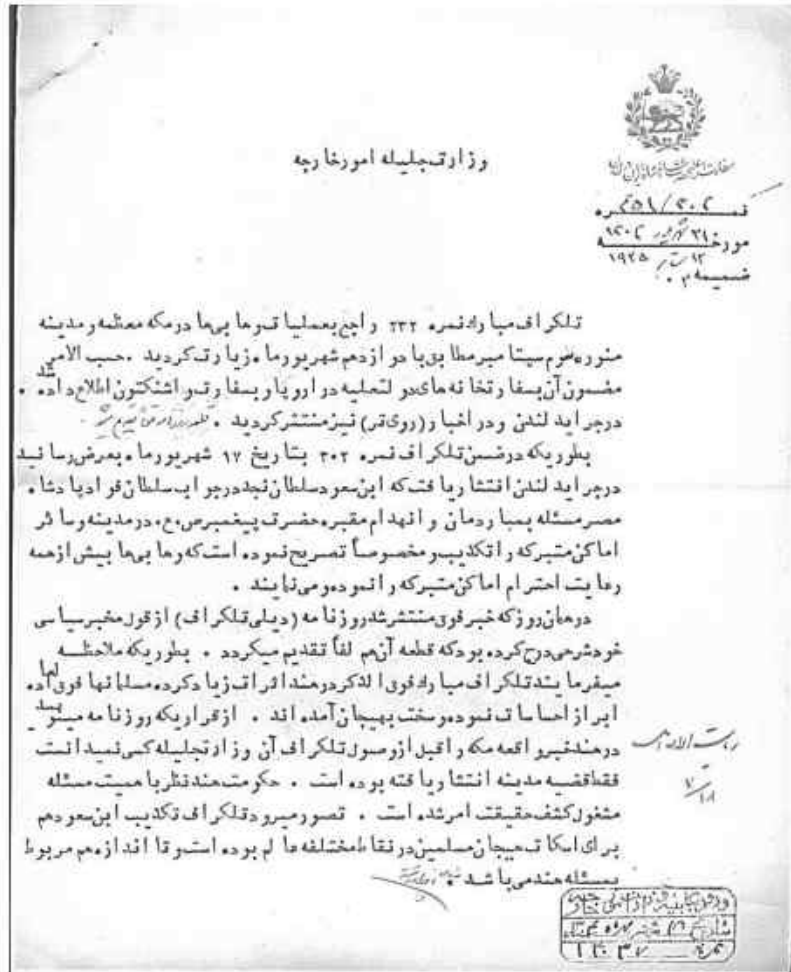 وزارت جلیله امور خارجه
نمره
مورخه ۲۱ شهریور ۱۳۰۴
۱۲ سپتامبر ۱۹۲۵
ضمیمه
تلگراف مبارک نمره ۲۳۲ راجع بعملیات وهابی‌ها در مکه معظمه و مدینه
منوره سوم سپتامبر مطابق با دوازدهم شهریور ماه زیارت گردید . حسب الامر
مضمون آن بسفارتخانه‌های دولتعلیه در اروپا و بسفارت واشنگتون اطلاع داده شد .
در جراید لندن و در اخبار (رویتر) نیز منتشر گردید .
بطوریکه در ضمن تلگراف نمره ۲۰۲ بتاریخ ۱۷ شهریور ماه بعرض رسانید
در جراید لندن انتشار یافت که ابن سعود سلطان نجد در جواب سلطان فواد پادشاه
مصر مسئله بمباردمان و انهدام مقبره حضرت پیغمبر ص.ع. در مدینه و سائر
اماکن متبرکه را تکذیب و مخصوصاً تصریح نموده است که وهابی‌ها بیش از همه
رعایت احترام اماکن متبرکه را نموده و می‌نمایند .
در همان روز که خبر فوق منتشر شد روزنامه (دیلی تلگراف) از قول مخبر سیاسی
خود شرحی درج کرده بود که قطعه آن هم لفاً تقدیم میگردد . بطوریکه ملاحظه
میفرمایند تلگراف مبارک فوق الذکر در هند اثرات زیاد کرده مسلمانها فوق العاده
ابراز احساسات نموده و سخت بهیجان آمده اند . از قراریکه روزنامه مینویسد
در هند خبر واقعه مکه را قبل از وصول تلگراف آن وزارتجلیله کسی نمیدانست
فقط قضیه مدینه انتشار یافته بوده است . حکومت هند نظر باهمیت مسئله
مشغول کشف حقیقت امر شده است . تصور میرود تلگراف تکذیب ابن سعود هم
برای اسکات هیجان مسلمین در نقاط مختلفه عالم بوده است و تا اندازه هم مربوط
بمسئله هند می باشد .